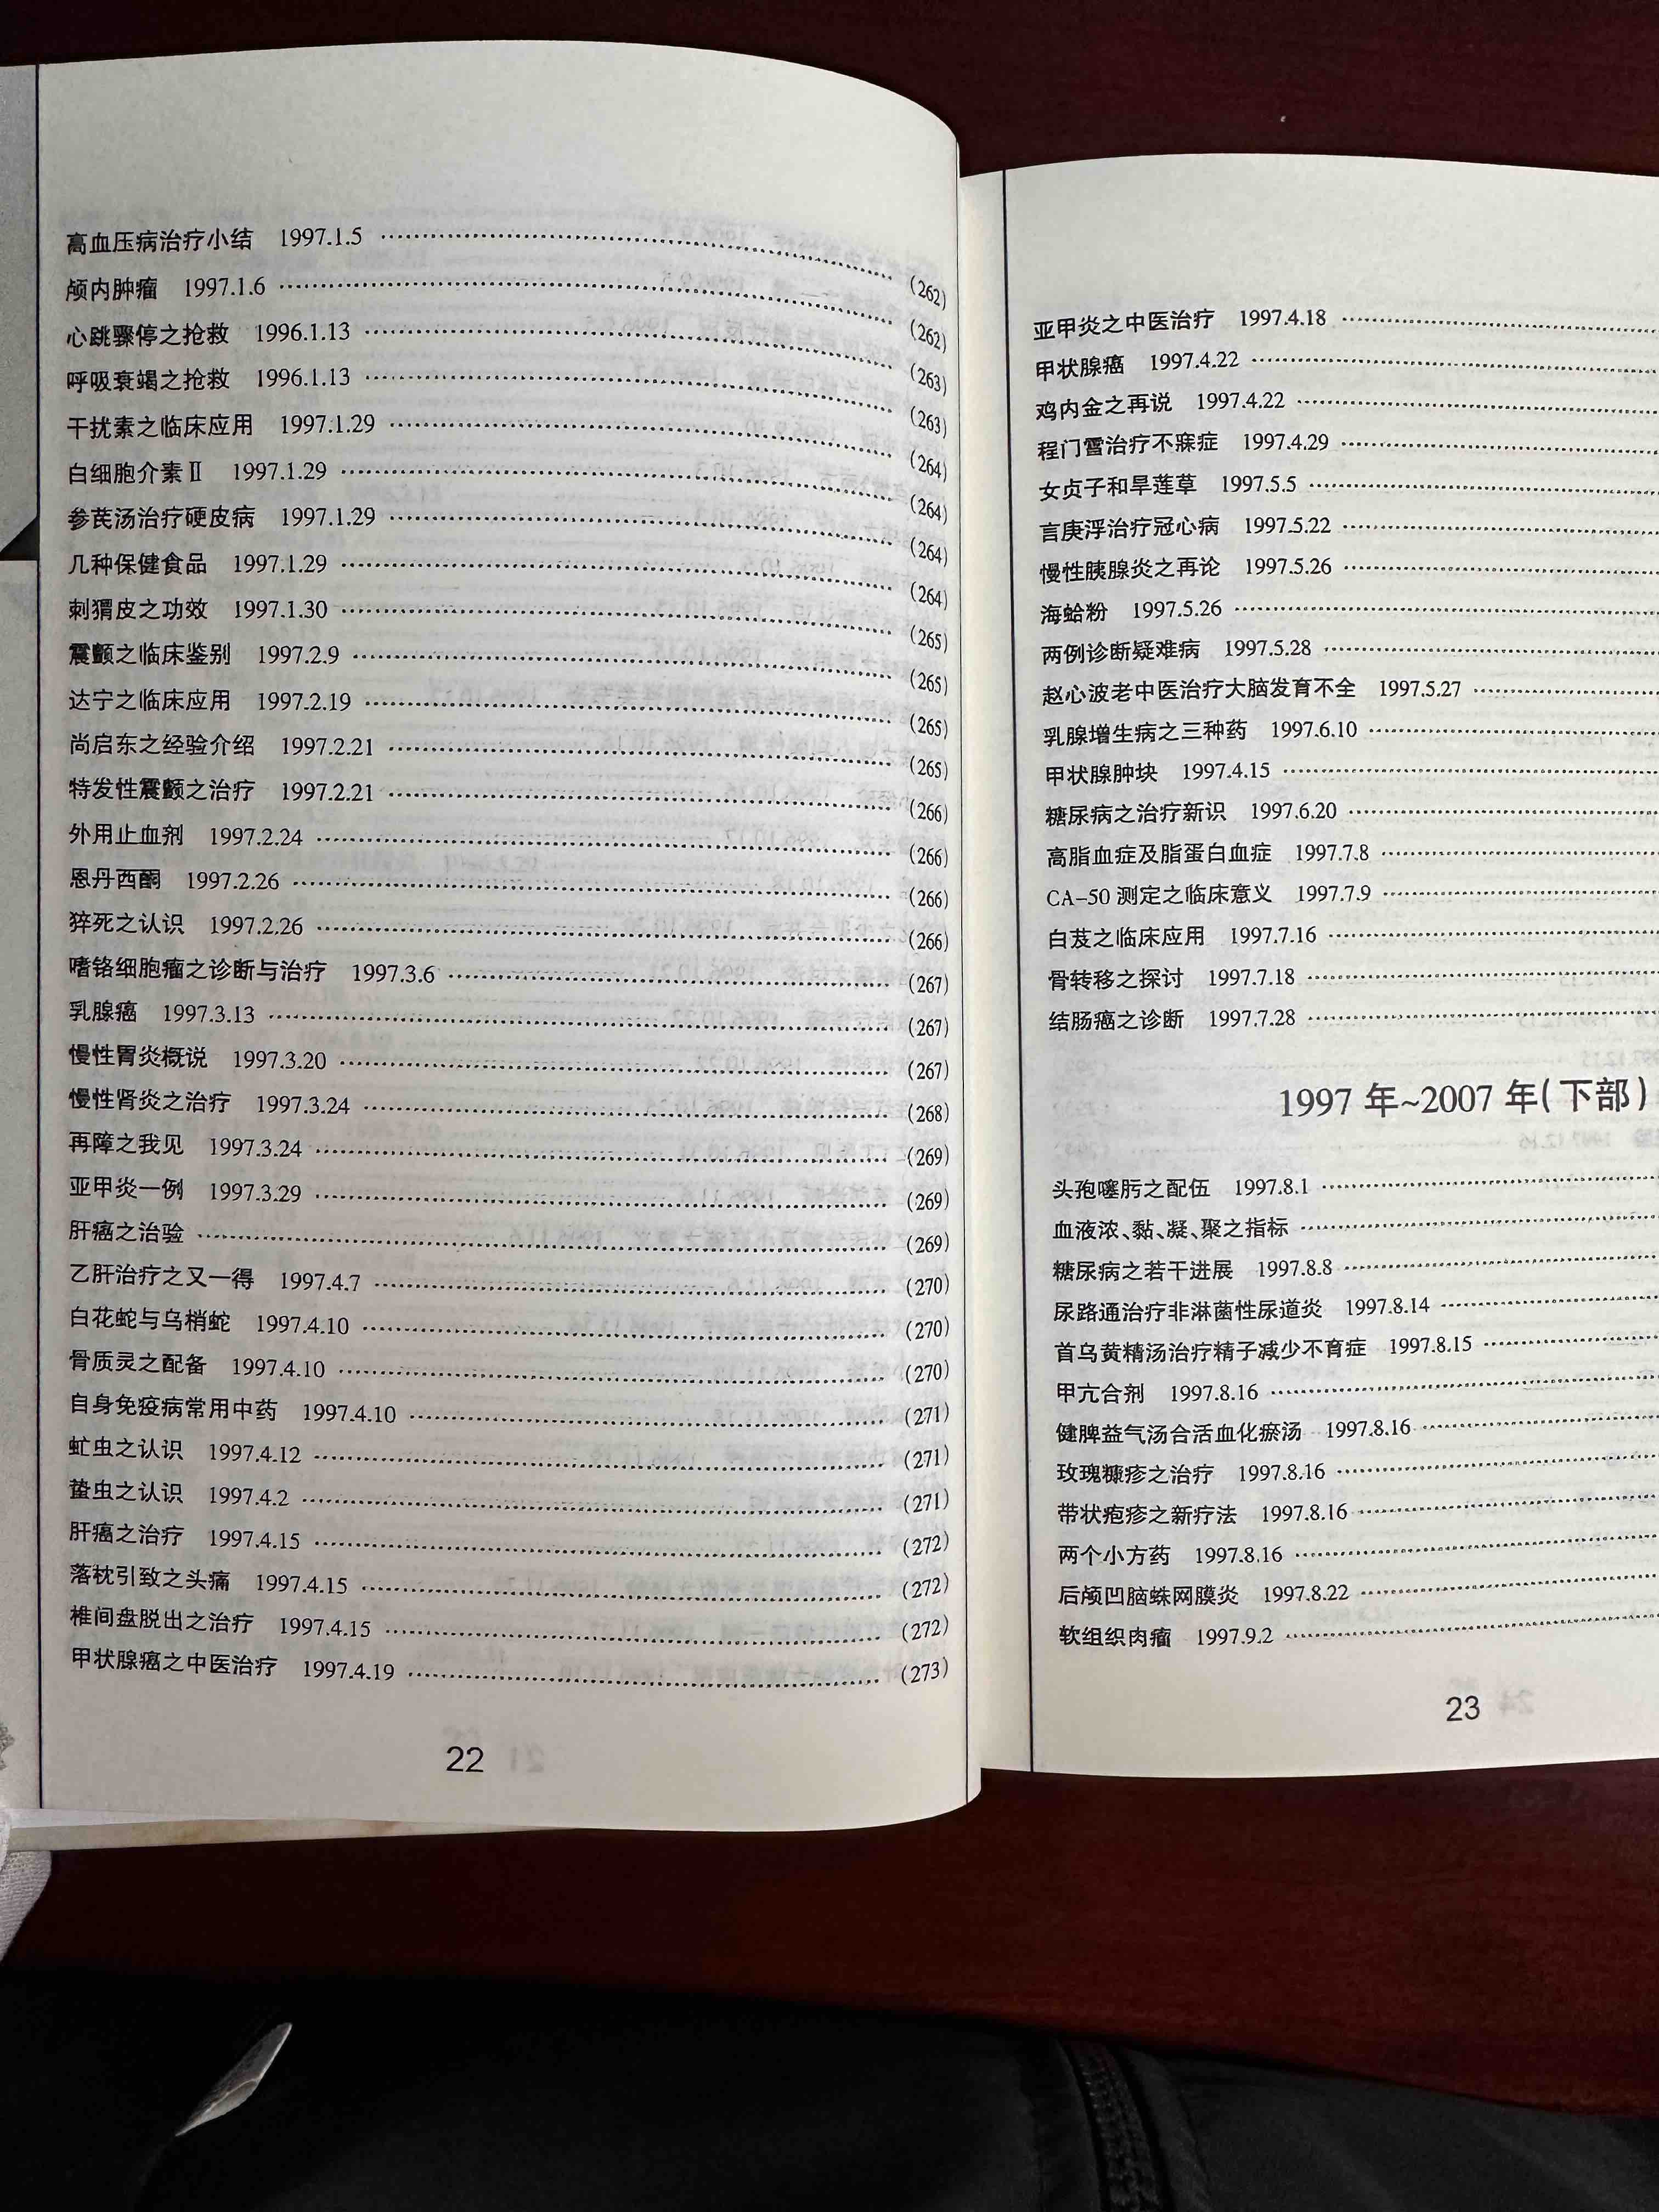 高血压病治疗小结 1997.1.5 (262)
颅内肿瘤 1997.1.6 (262)
心跳骤停之抢救 1996.1.13 (263)
呼吸衰竭之抢救 1996.1.13 (263)
干扰素之临床应用 1997.1.29 (264)
白细胞介素Ⅱ 1997.1.29 (264)
参芪汤治疗硬皮病 1997.1.29 (264)
几种保健食品 1997.1.29 (264)
刺猬皮之功效 1997.1.30 (265)
震颤之临床鉴别 1997.2.9 (265)
达宁之临床应用 1997.2.19 (265)
尚启东之经验介绍 1997.2.21 (265)
特发性震颤之治疗 1997.2.21 (266)
外用止血剂 1997.2.24 (266)
恩丹西酮 1997.2.26 (266)
猝死之认识 1997.2.26 (266)
嗜铬细胞瘤之诊断与治疗 1997.3.6 (267)
乳腺癌 1997.3.13 (267)
慢性胃炎概说 1997.3.20 (267)
慢性肾炎之治疗 1997.3.24 (268)
再障之我见 1997.3.24 (269)
亚甲炎一例 1997.3.29 (269)
肝癌之治验 (269)
乙肝治疗之又一得 1997.4.7 (270)
白花蛇与乌梢蛇 1997.4.10 (270)
骨质灵之配备 1997.4.10 (270)
自身免疫病常用中药 1997.4.10 (271)
虻虫之认识 1997.4.12 (271)
蛰虫之认识 1997.4.2 (271)
肝癌之治疗 1997.4.15 (272)
落枕引致之头痛 1997.4.15 (272)
椎间盘脱出之治疗 1997.4.15 (272)
甲状腺癌之中医治疗 1997.4.19 (273)
22
亚甲炎之中医治疗 1997.4.18
甲状腺癌 1997.4.22
鸡内金之再说 1997.4.22
程门雪治疗不寐症 1997.4.29
女贞子和旱莲草 1997.5.5
言庚浮治疗冠心病 1997.5.22
慢性胰腺炎之再论 1997.5.26
海蛤粉 1997.5.26
两例诊断疑难病 1997.5.28
赵心波老中医治疗大脑发育不全 1997.5.27
乳腺增生病之三种药 1997.6.10
甲状腺肿块 1997.4.15
糖尿病之治疗新识 1997.6.20
高脂血症及脂蛋白血症 1997.7.8
CA-50 测定之临床意义 1997.7.9
白芨之临床应用 1997.7.16
骨转移之探讨 1997.7.18
结肠癌之诊断 1997.7.28
1997 年~2007 年(下部)
头孢噻肟之配伍 1997.8.1
血液浓、黏、凝、聚之指标
糖尿病之若干进展 1997.8.8
尿路通治疗非淋菌性尿道炎 1997.8.14
首乌黄精汤治疗精子减少不育症 1997.8.15
甲亢合剂 1997.8.16
健脾益气汤合活血化瘀汤 1997.8.16
玫瑰糠疹之治疗 1997.8.16
带状疱疹之新疗法 1997.8.16
两个小方药 1997.8.16
后颅凹脑蛛网膜炎 1997.8.22
软组织肉瘤 1997.9.2
23